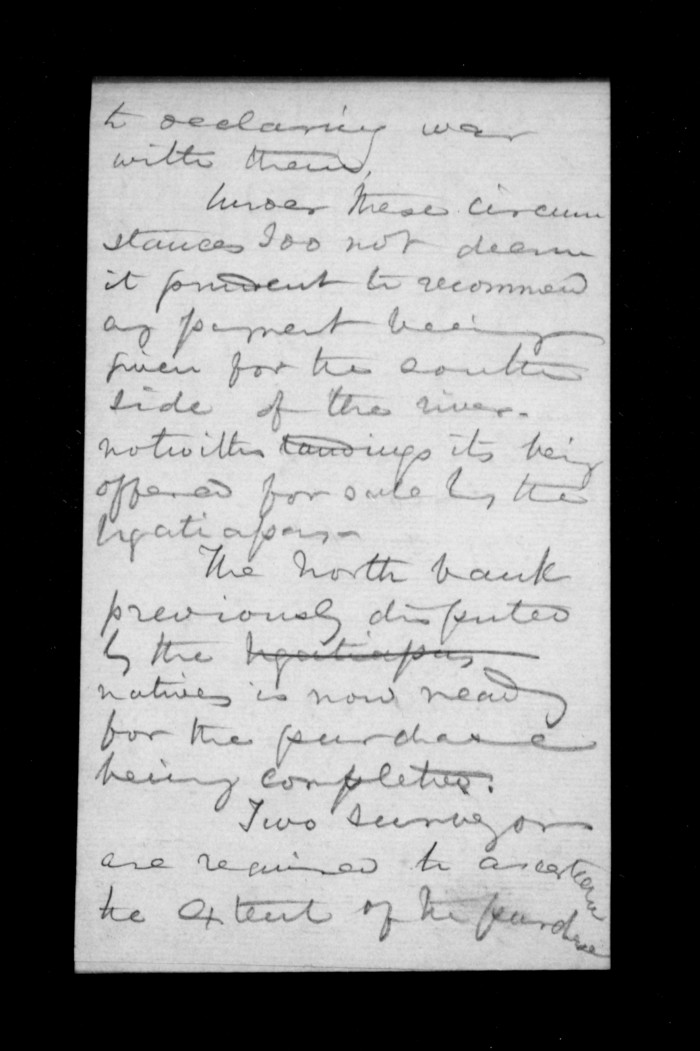 to declaring war
with them,
Under these circum
stances I do not deem
it prudent to recommend
any payment being
given for the south
side of the river.
notwithstandings its being
offered for sale by the
Ngatiapas.
The North bank
previously disputed
by the Ngatiapas
natives is now ready
for the purchase
being completed.
Two surveyors
are required to ascertain
the extent of the purchase